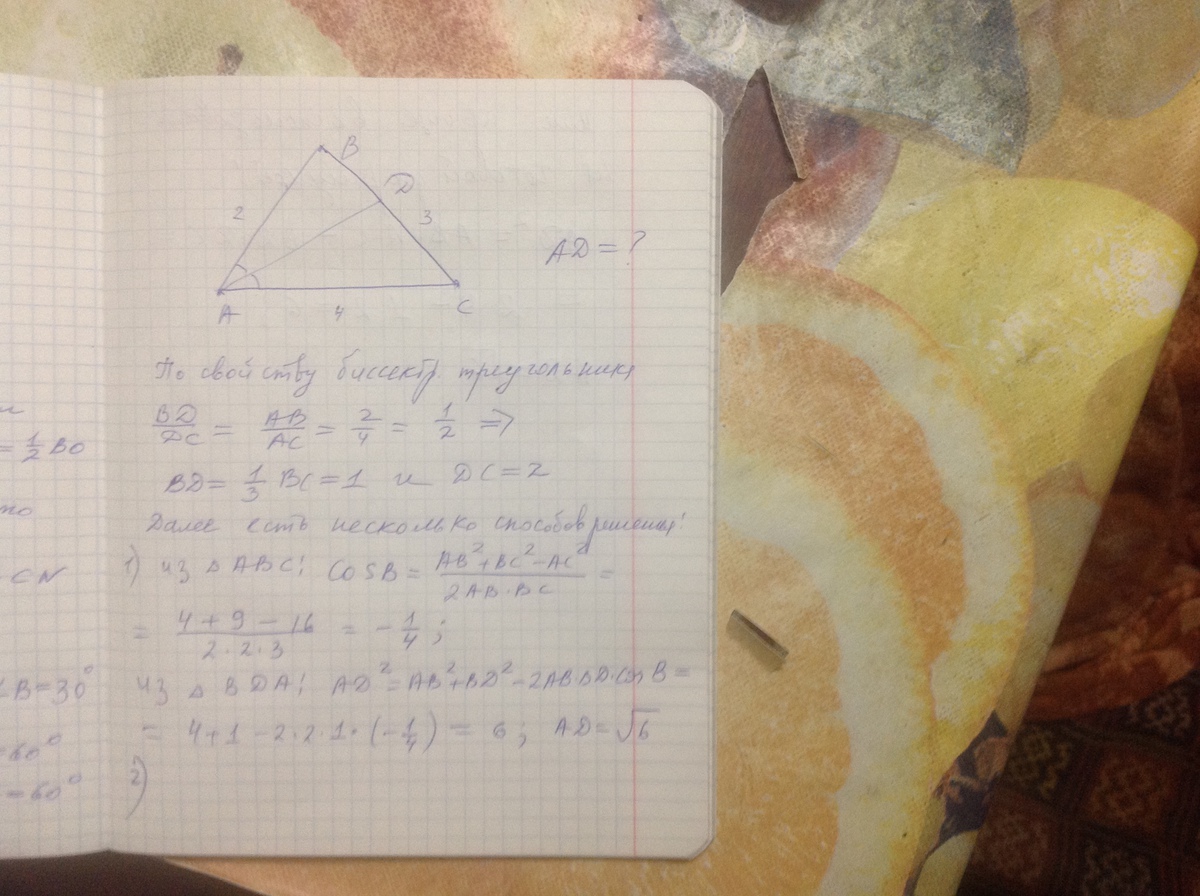 B
D
2
3
AD = ?
A
4
C
По свойству биссектр. треугольника
BD/DC = AB/AC = 2/4 = 1/2 =>
BD = 1/3 BC = 1 и DC = 2
Далее есть несколько способов решения:
1) из △ ABC: COSB = AB²+BC²-AC² / 2AB·BC =
= 4+9-16 / 2·2·3 = -1/4;
из △ BDA: AD² = AB²+BD²-2AB·BD·COSB =
= 4+1-2·2·1·(-1/4) = 6; AD = √6
2)
= 1/2 BO
CN
B=30°
=60°
=60°